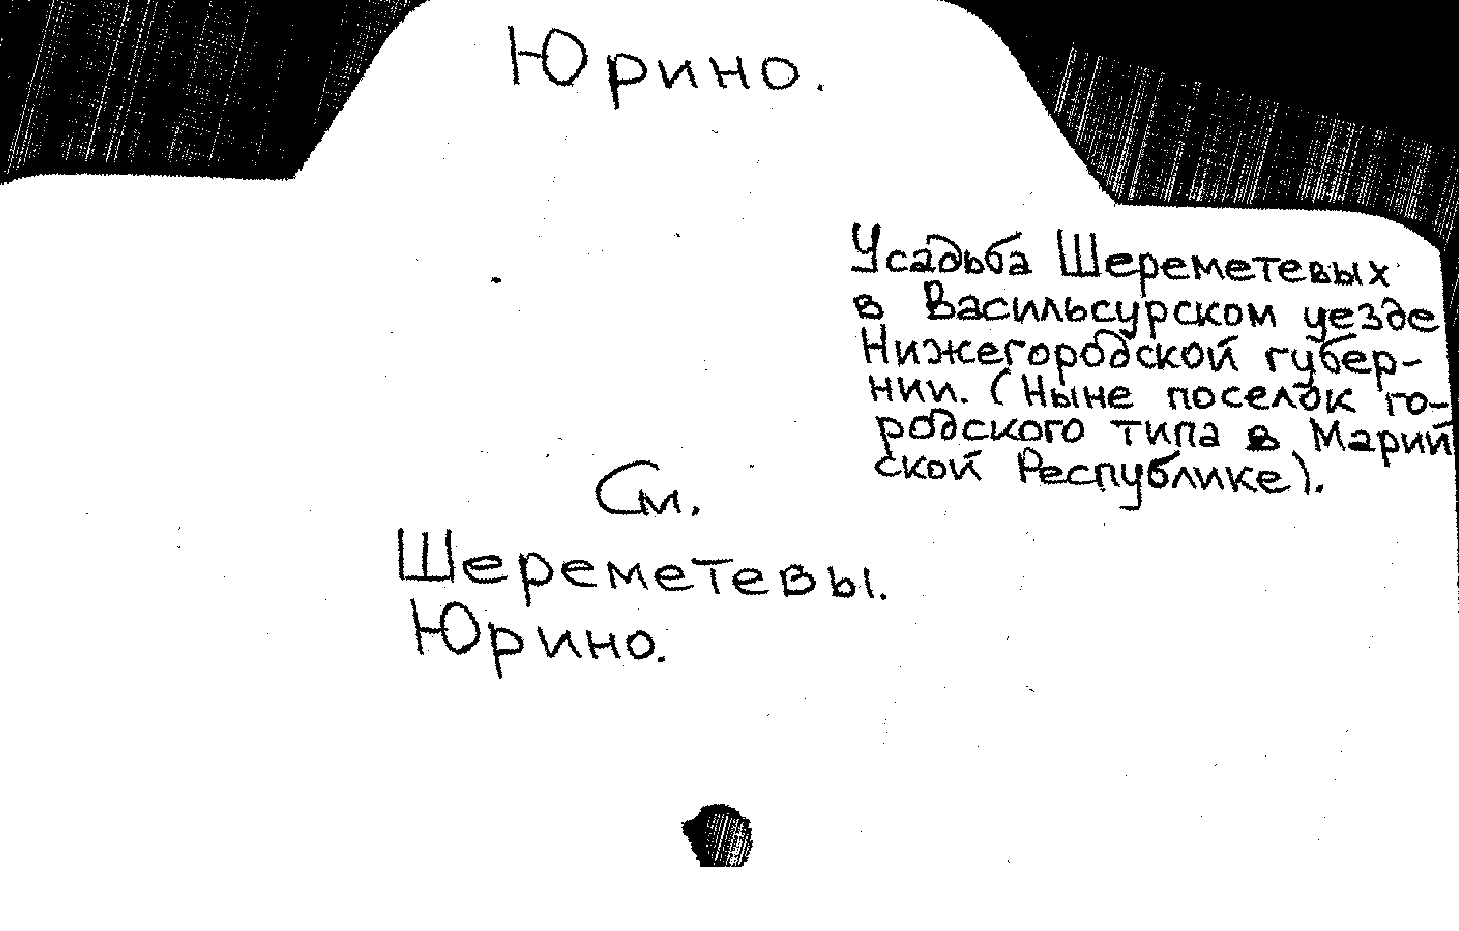 Юрино.
Усадьба Шереметевых
в Васильсурском уезде
Нижегородской губер-
нии. (Ныне поселок го-
родского типа в Марий
ской Республике).
См.
Шереметевы.
Юрино.